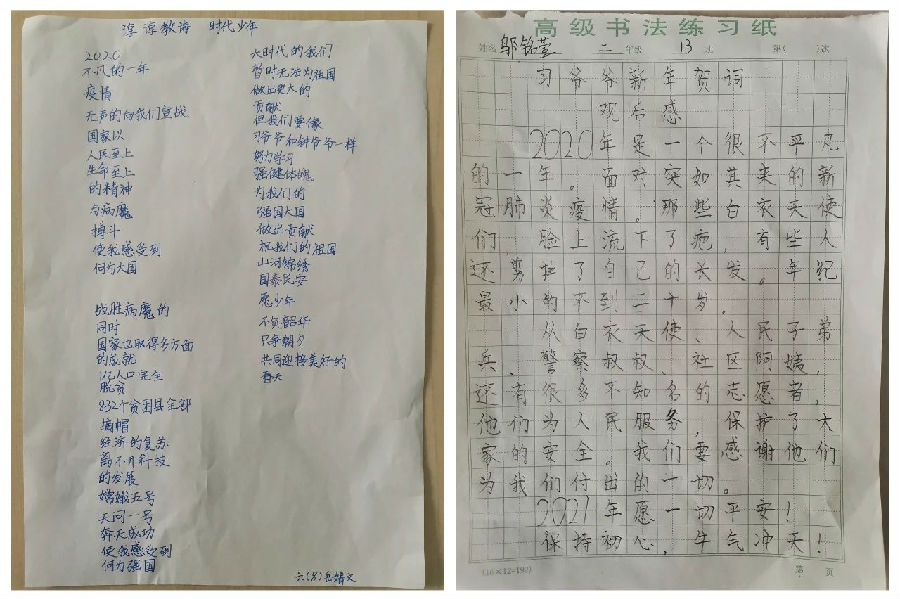 谆谆教海 时代少年
2020
不凡的一年
疫情
无声的向我们宣战
国家以
人民至上
生命至上
的精神
与病魔
搏斗
使我感受到
何为大国
战胜病魔的
同时
国家还取得多方面
的成就
亿人口完全
脱贫
832个贫困县全部
摘帽
经济的复苏
离不开科技
的发展
嫦娥五号
天问一号
奔天成功
使我感受到
何为强国
大时代的我们
暂时无法为祖国
做出更大的
贡献
但我们要像
习爷爷和钟爷爷一样
努力学习
强健体魄
为我们的
强国大国
做出贡献
祝我们的祖国
山河锦绣
国泰民安
愿少年
不负韶华
只争朝夕
共同迎接美好的
春天
六(8)岳婧文
高级书法练习纸
姓名 邬铭萱 二年级 13班 第( )次
习爷爷新年贺词
观书感
2020年是一个很不平凡
的一年。面对突如其来的新
冠肺炎疫情。那些白衣天使
们,脸上流下了疤,有些人
还剪掉了自己的长发。年纪
最小的不到二十岁。
从白衣天使、人民子弟
兵、警察叔叔、社区阿姨,
还有很多不知名的志愿者,
他们为人民服务,保护了大
家的安全。我们要感谢他们
为我们付出的一切。
2021年愿一切平安!
保持初心,牛气冲天!
(16×12=192)
第 页